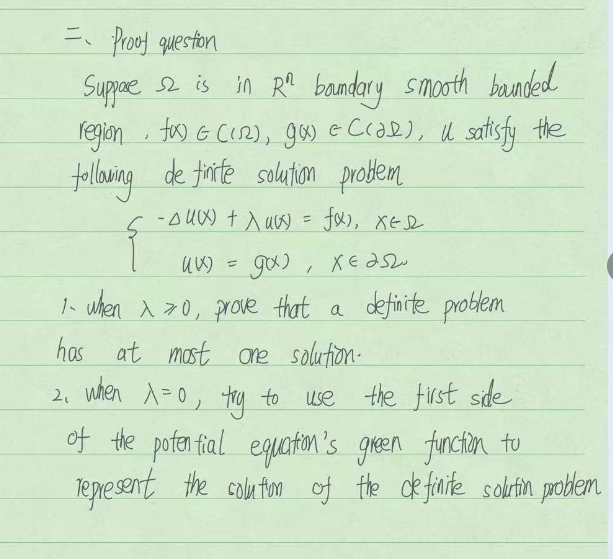 二、Proof question
Suppose Ω is in Rⁿ boundary smooth bounded
region, f(x) ∈ C(Ω), g(x) ∈ C(∂Ω), u satisfy the
following definite solution problem
{ -Δu(x) + λu(x) = f(x), x∈Ω
u(x) = g(x), x∈∂Ω
1. when λ≥0, prove that a definite problem
has at most one solution.
2. when λ=0, try to use the first side
of the potential equation's green function to
represent the solution of the definite solution problem